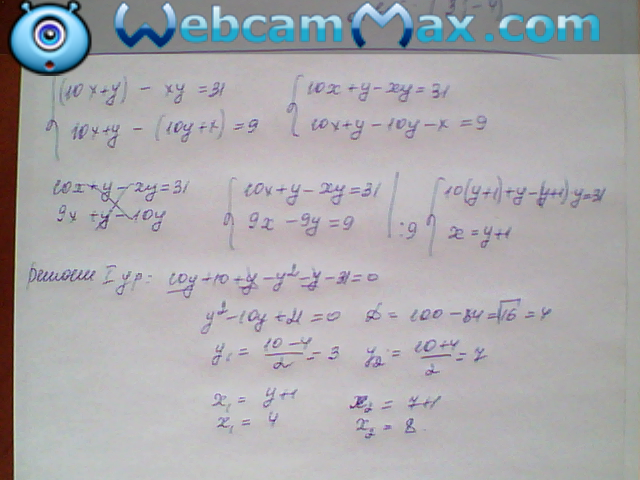 WebcamMax.com
(10x+y) - xy = 31
10x+y - (10y+x) = 9
10x+y-xy=31
10x+y-10y-x=9
10x+y-xy=31
9x+y-10y
10x+y-xy=31
9x-9y=9
:9
10(y+1)+y-(y+1)y=31
x=y+1
Решаем I ур: 10y+10+y-y²-y-31=0
y²-10y+21=0 D=100-84=√16=4
y₁=(10-4)/2=3 y₂=(10+4)/2=7
x₁=y+1 x₂=7+1
x₁=4 x₂=8